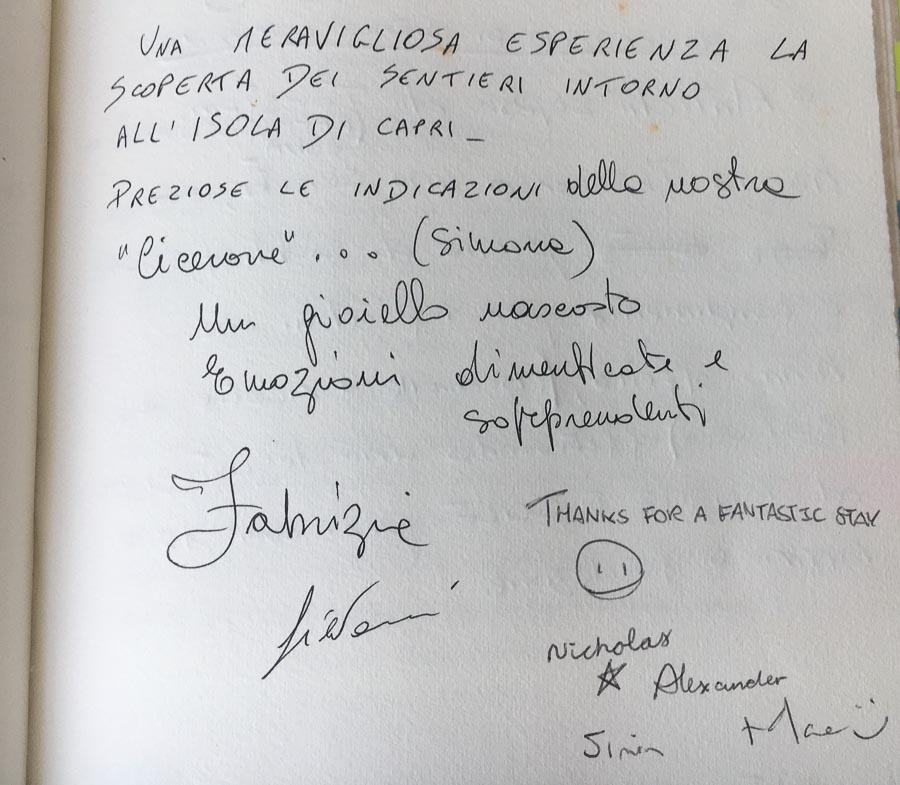 UNA MERAVIGLIOSA ESPERIENZA LA
SCOPERTA DEI SENTIERI INTORNO
ALL'ISOLA DI CAPRI_
PREZIOSE LE INDICAZIONI della nostra
"Cicerone"... (Simona)
Un gioiello nascosto
Emozioni dimenticate e
sorprendenti
Fabrizio
THANKS FOR A FANTASTIC STAY
Nicholas
Alexander
+Mae